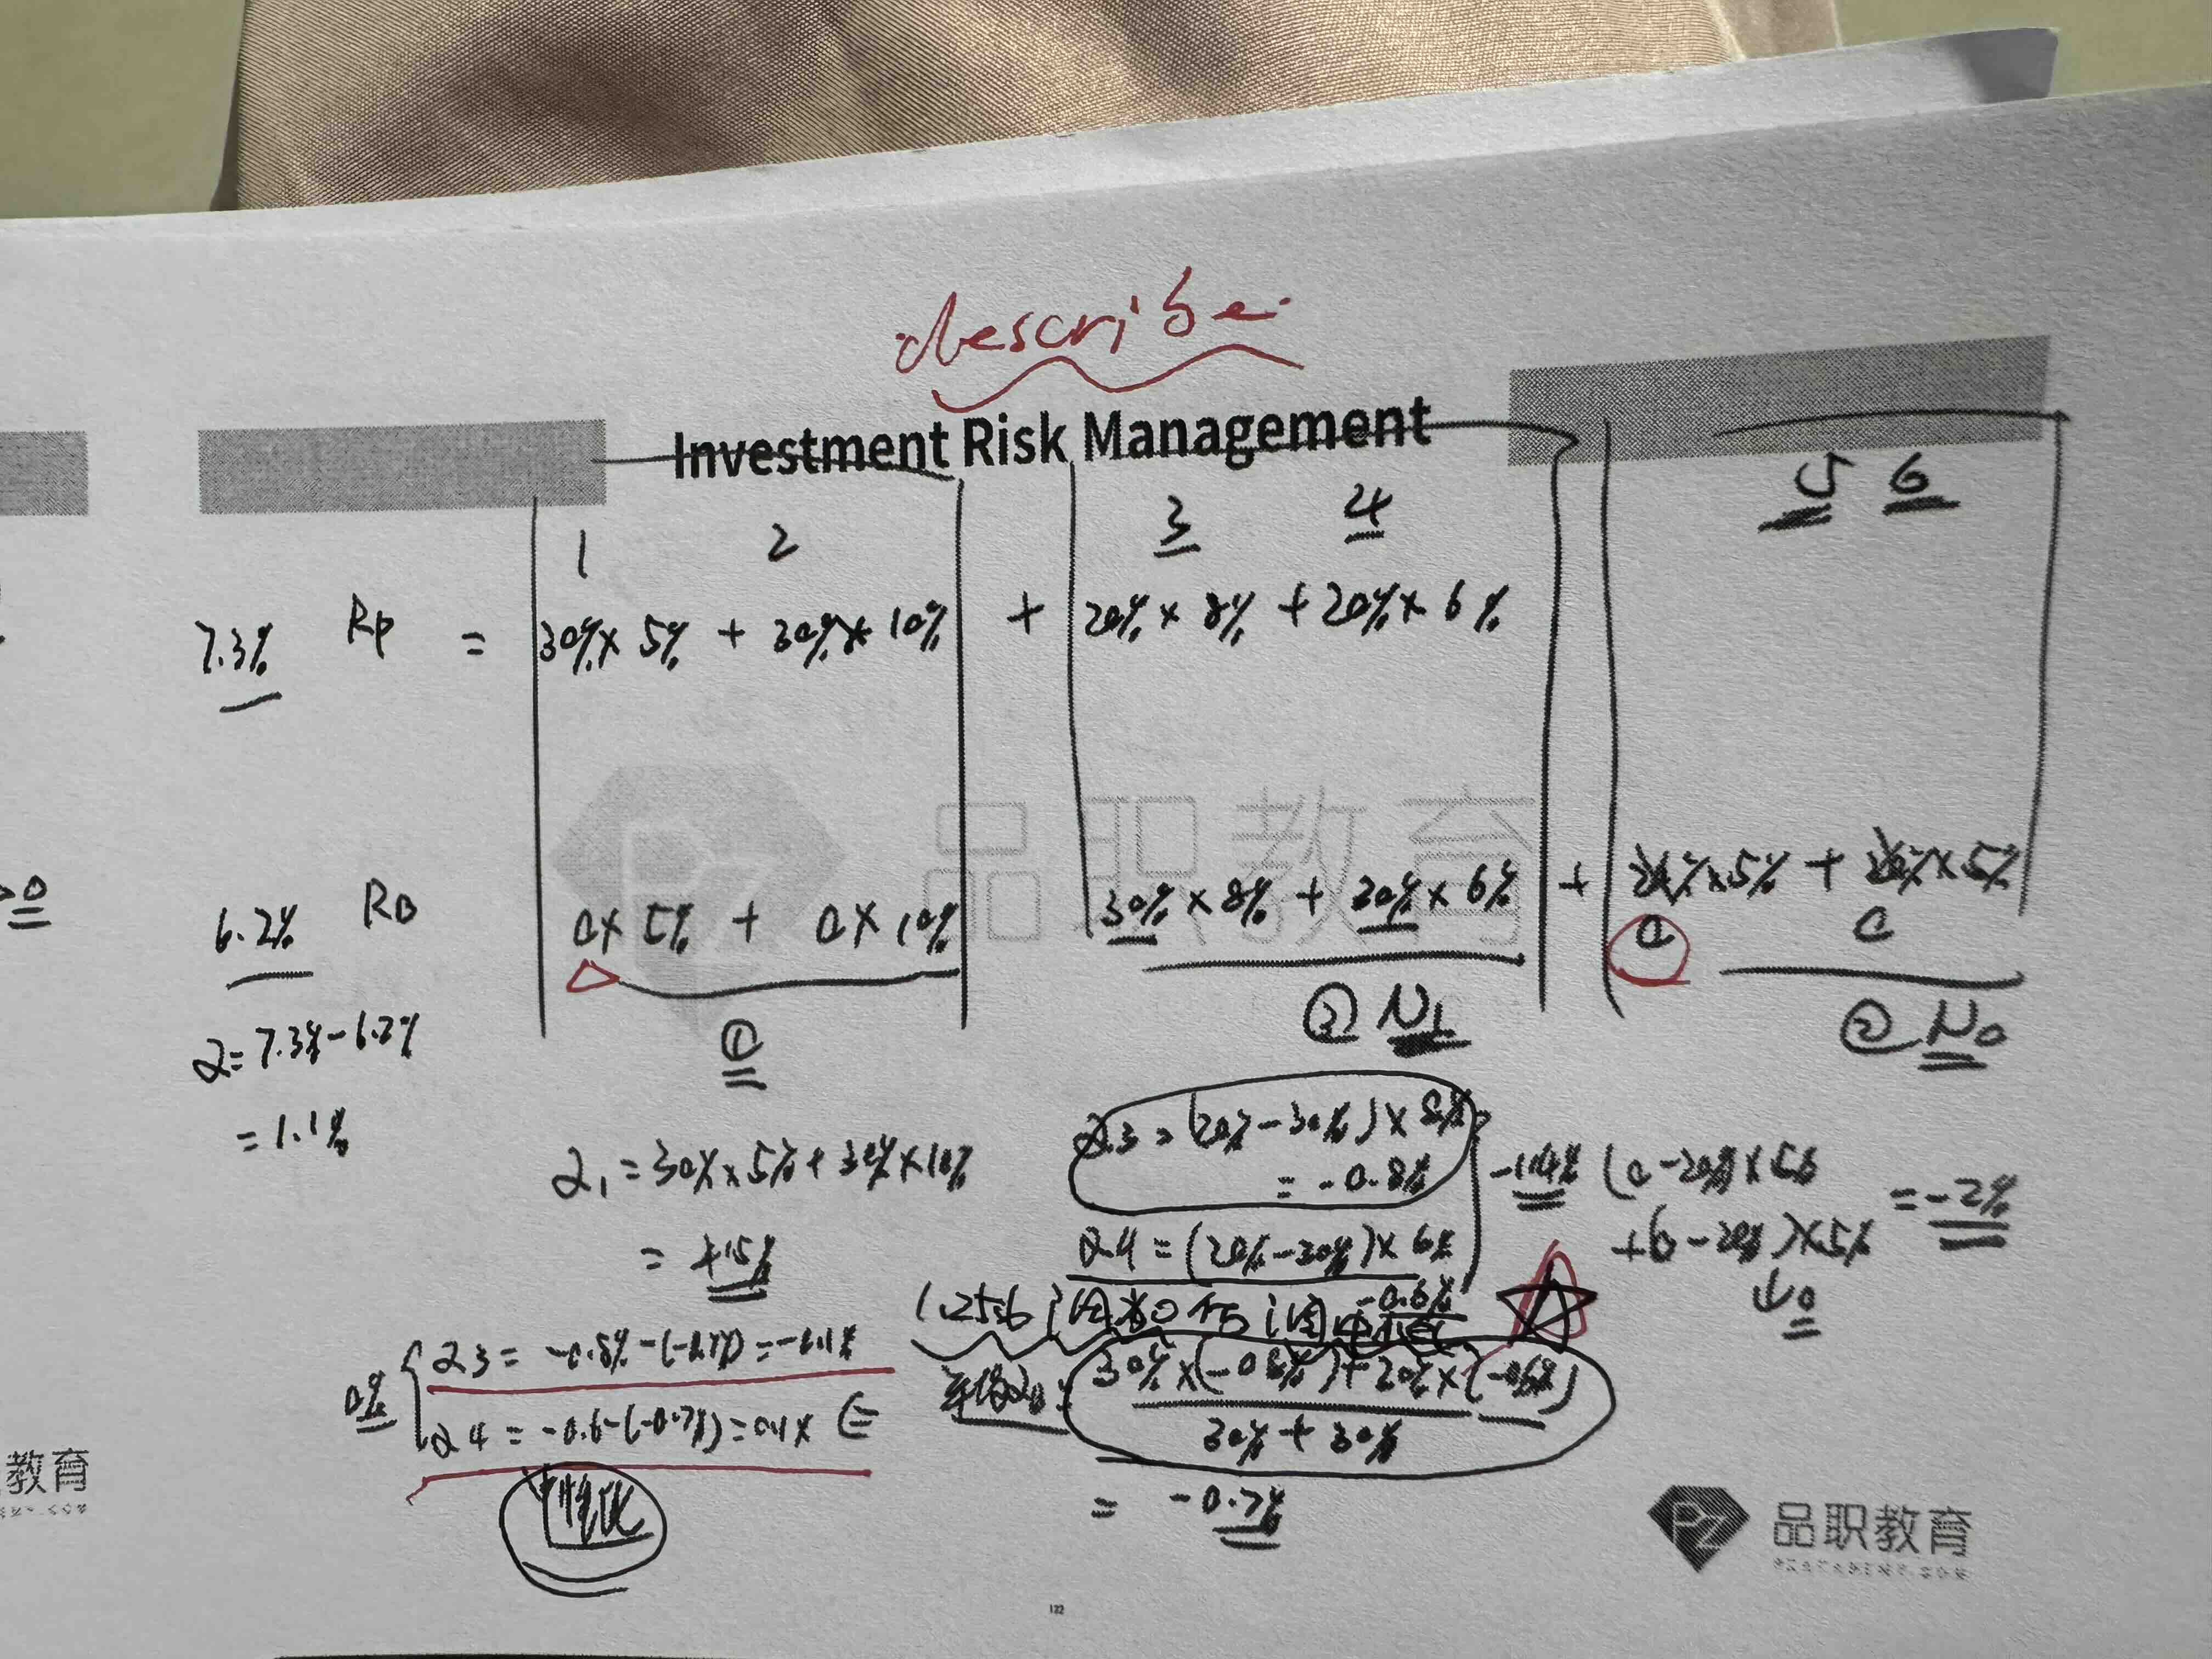 describe
Investment Risk Management
1 2 3 4 5 6
7.3% Rp = 30% × 5% + 30% × 10% + 20% × 8% + 20% × 6%
品职教育
6.2% RB 0 × 5% + 0 × 10% 30% × 8% + 30% × 6% + 20% × 5% + 20% × 5%
0 0
① ② N1 ② N0
α = 7.3% - 6.2%
= 1.1%
α1 = 30% × 5% + 30% × 10%
= +15%
α3 = (20% - 30%) × 8%
= -0.8%
-1.4% (0 - 20%) × 5%
+(0 - 20%) × 5% = -2%
↓0
α4 = (20% - 30%) × 6%
-0.6%
1.2.5.6
0% { α3 = -0.8% - (-0.7%) = -0.1%
α4 = -0.6 - (-0.7%) = 0.1%
30% × (-0.8%) + 30% × (-0.6%)
30% + 30%
= -0.7%
教育
品职教育
122